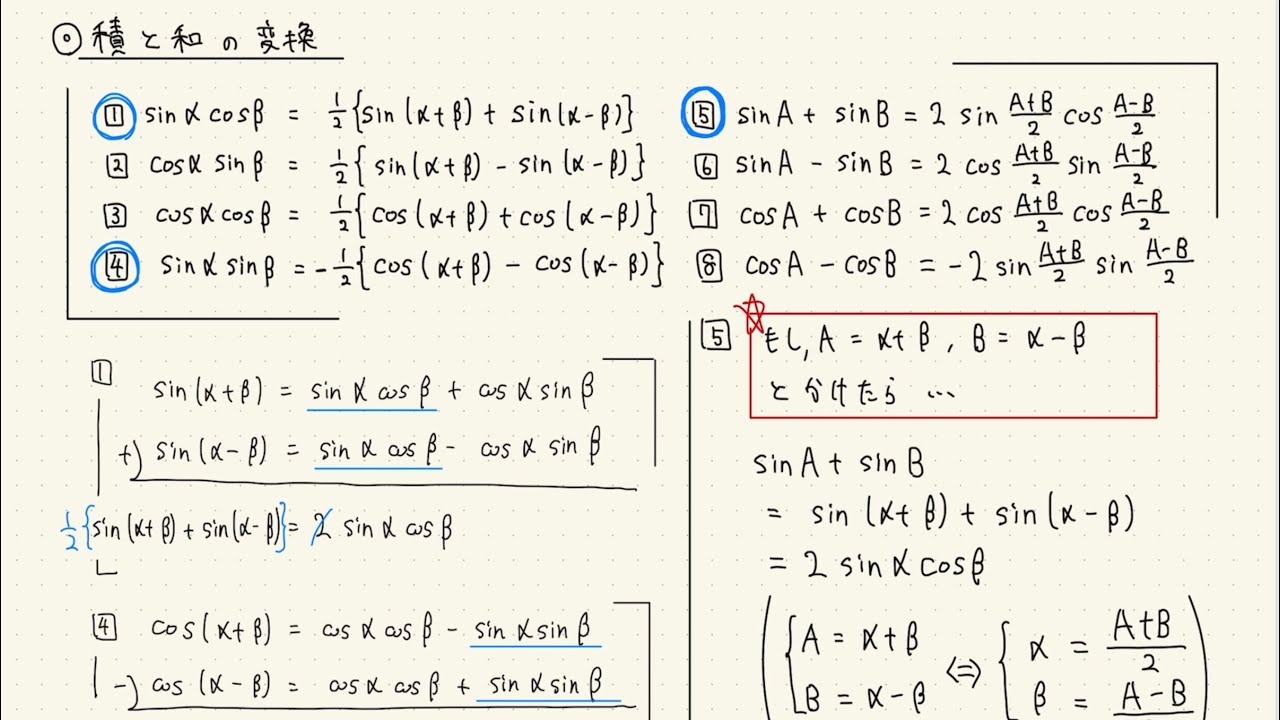 ◎ 積と和の変換
1 sinα cosβ = 1/2{sin(α+β) + sin(α-β)}
2 cosα sinβ = 1/2{sin(α+β) - sin(α-β)}
3 cosα cosβ = 1/2{cos(α+β) + cos(α-β)}
4 sinα sinβ = -1/2{cos(α+β) - cos(α-β)}
5 sinA + sinB = 2 sin (A+B)/2 cos (A-B)/2
6 sinA - sinB = 2 cos (A+B)/2 sin (A-B)/2
7 cosA + cosB = 2 cos (A+B)/2 cos (A-B)/2
8 cosA - cosB = -2 sin (A+B)/2 sin (A-B)/2
1
sin(α+β) = sinα cosβ + cosα sinβ
+) sin(α-β) = sinα cosβ - cosα sinβ
1/2{sin(α+β) + sin(α-β)} = 2 sinα cosβ
4 cos(α+β) = cosα cosβ - sinα sinβ
-) cos(α-β) = cosα cosβ + sinα sinβ
5 もし, A = α+β, B = α-β
とかけたら …
sinA + sinB
= sin(α+β) + sin(α-β)
= 2 sinα cosβ
( { A = α+β ⇔ { α = (A+B)/2 )
B = α-β β = A-B